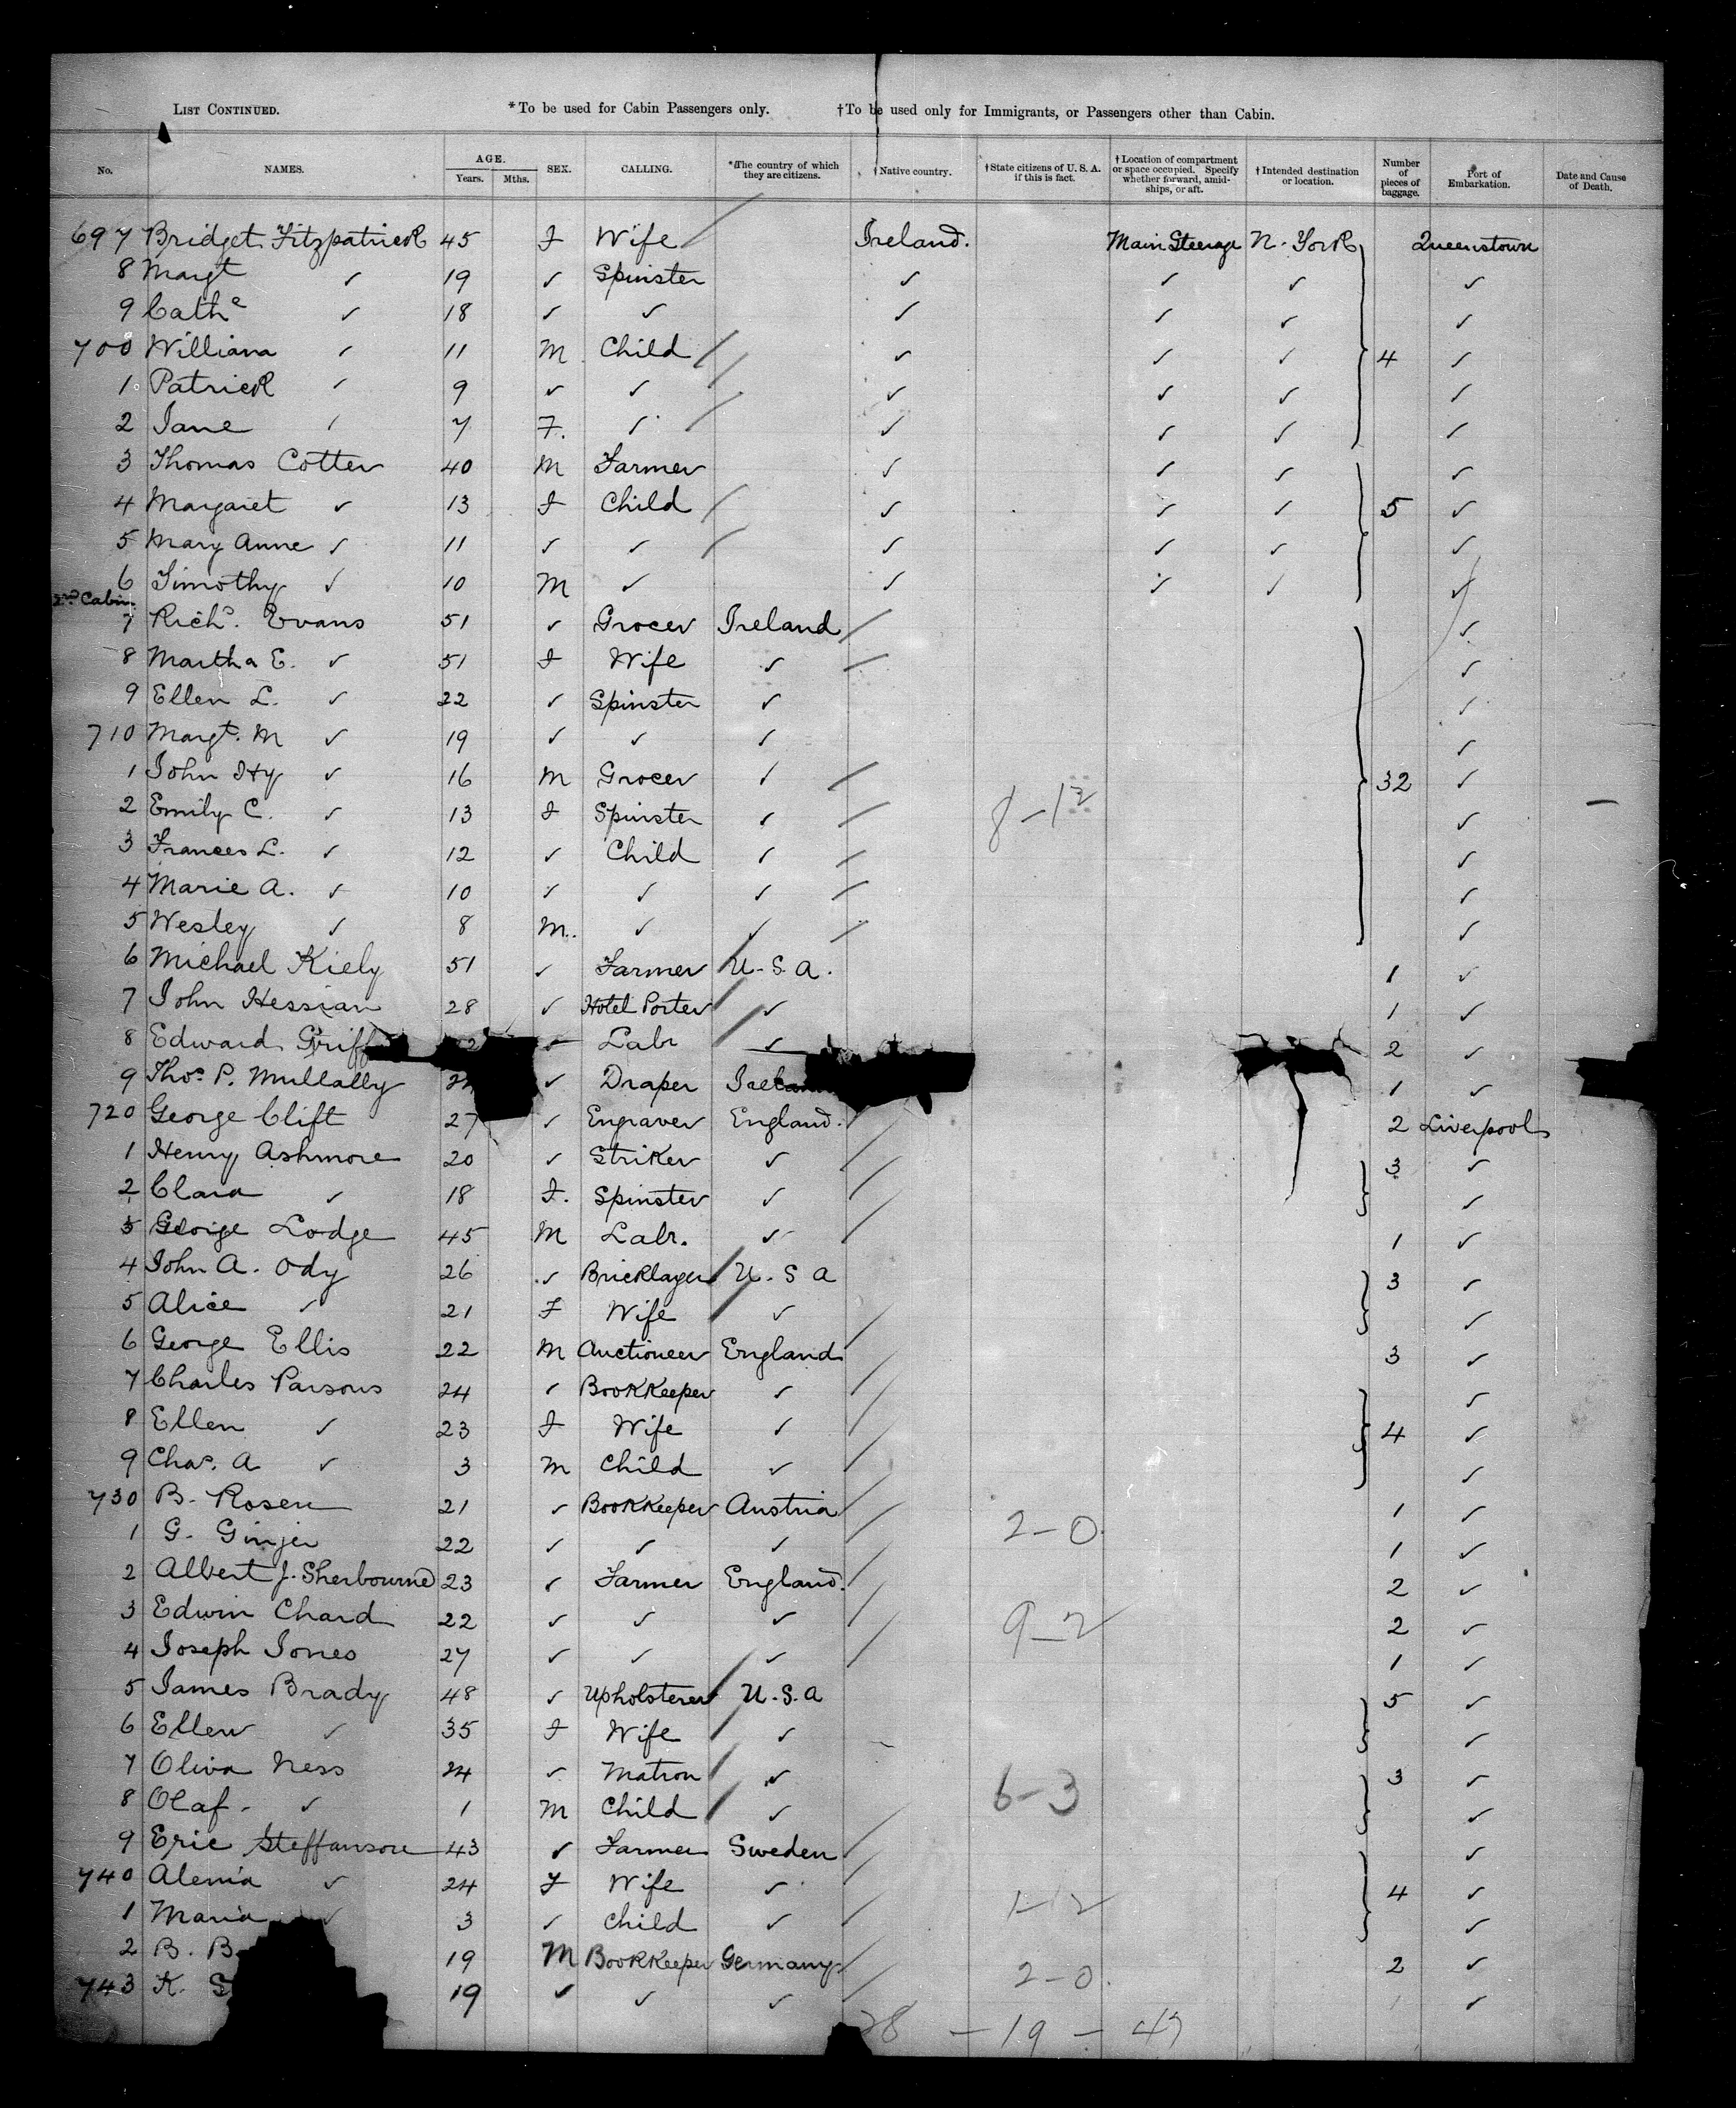 LIST CONTINUED. *To be used for Cabin Passengers only. †To be used only for Immigrants, or Passengers other than Cabin.
No. NAMES. AGE. Years. Mths. SEX. CALLING. *The country of which they are citizens. †Native country. †State citizens of U. S. A. if this is fact. †Location of compartment or space occupied. Specify whether forward, amidships, or aft. †Intended destination or location. Number of pieces of baggage. Port of Embarkation. Date and Cause of Death.
697 Bridget Fitzpatrick 45 F Wife Ireland. Main Steerage N. York Queenstown
8 Margt ✓ 19 ✓ Spinster ✓ ✓ ✓ ✓
9 Cathe ✓ 18 ✓ ✓ ✓ ✓ ✓ ✓
700 William ✓ 11 M Child ✓ ✓ ✓ 4 ✓
1 Patrick ✓ 9 ✓ ✓ ✓ ✓ ✓ ✓
2 Jane ✓ 7 F. ✓ ✓ ✓ ✓ ✓
3 Thomas Cotter 40 M Farmer ✓ ✓ ✓ ✓
4 Margaret ✓ 13 F Child ✓ ✓ ✓ 5 ✓
5 Mary Anne ✓ 11 ✓ ✓ ✓ ✓ ✓ ✓
6 Timothy ✓ 10 M ✓ ✓ ✓ ✓ ✓
2nd Cabin.
7 Richd. Evans 51 ✓ Grocer Ireland ✓
8 Martha E. ✓ 51 F Wife ✓ ✓
9 Ellen L. ✓ 22 ✓ Spinster ✓ ✓
710 Margt. M ✓ 19 ✓ ✓ ✓ ✓
1 John Hy ✓ 16 M Grocer ✓ 32 ✓
2 Emily C. ✓ 13 F Spinster ✓ 8-12 ✓
3 Frances L. ✓ 12 ✓ Child ✓ ✓
4 Marie A. ✓ 10 ✓ ✓ ✓ ✓
5 Wesley ✓ 8 M. ✓ ✓ ✓
6 Michael Kiely 51 ✓ Farmer U.S.A. 1 ✓
7 John Hessian 28 ✓ Hotel Porter ✓ 1 ✓
8 Edward Griff ✓ Labr ✓ 2 ✓
9 Thos. P. Mullally ✓ Draper 1 ✓
720 George Clift 27 ✓ Engraver England. 2 Liverpool
1 Henry Ashmore 20 ✓ Striker ✓ 3 ✓
2 Clara ✓ 18 F. Spinster ✓ ✓
3 George Lodge 45 M Labr. ✓ 1 ✓
4 John A. Ody 26 ✓ Bricklayer U.S A 3 ✓
5 Alice ✓ 21 F Wife ✓ ✓
6 George Ellis 22 M Auctioneer England 3 ✓
7 Charles Parsons 24 ✓ Bookkeeper ✓ ✓
8 Ellen ✓ 23 F Wife ✓ 4 ✓
9 Chas. A ✓ 3 M Child ✓ ✓
730 B. Rosen 21 ✓ Bookkeeper Austria 2-0 1 ✓
1 G. Ginjer 22 ✓ ✓ ✓ 1 ✓
2 Albert J. Sherbourne 23 ✓ Farmer England. 2 ✓
3 Edwin Chard 22 ✓ ✓ ✓ 9-2 2 ✓
4 Joseph Jones 27 ✓ ✓ ✓ 1 ✓
5 James Brady 48 ✓ Upholsterer U.S.A 5 ✓
6 Ellen ✓ 35 F Wife ✓ ✓
7 Oliva Ness 24 ✓ Matron ✓ 6-3 3 ✓
8 Olaf. ✓ 1 M Child ✓ ✓
9 Eric Steffanson 43 ✓ Farmer Sweden ✓
740 Alenia ✓ 24 F Wife ✓ 1-2 4 ✓
1 Maria ✓ 3 ✓ Child ✓ ✓
2 B. B 19 M Bookkeeper Germany 2-0. 2 ✓
743 K. S 19 ✓ ✓ ✓ ✓
28 - 19 - 47